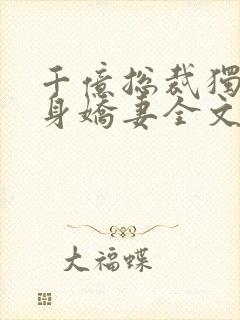 千億總裁獨
身嬌妻全文
大福蝶